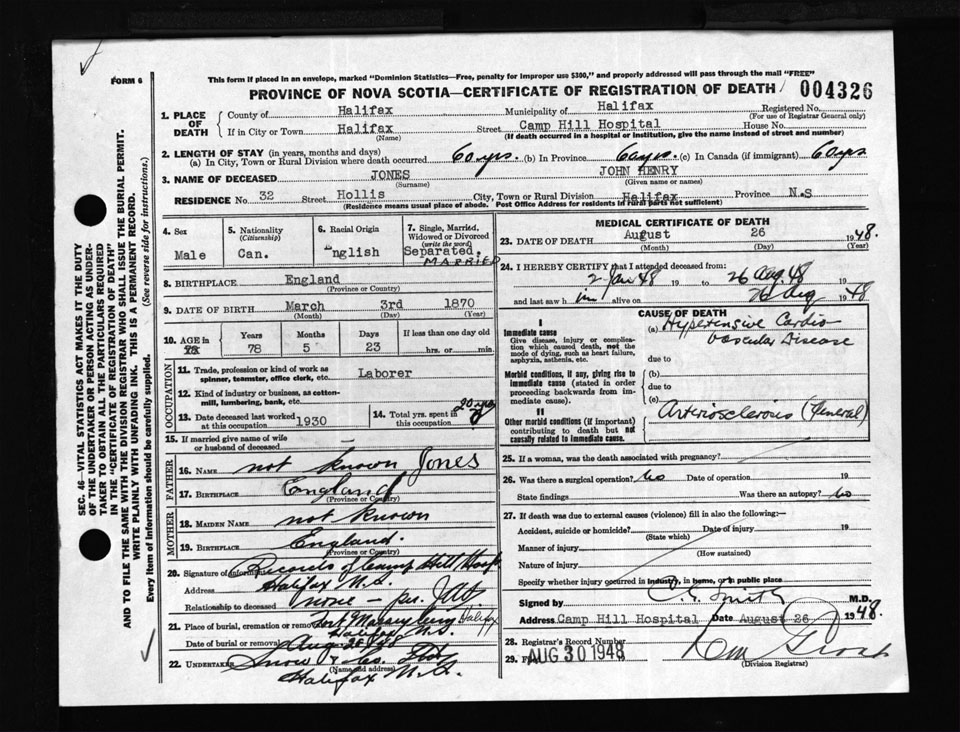 FORM 6
This form if placed in an envelope, marked "Dominion Statistics—Free, penalty for improper use $300," and properly addressed will pass through the mail "FREE"
PROVINCE OF NOVA SCOTIA—CERTIFICATE OF REGISTRATION OF DEATH
004326
1. PLACE OF DEATH
County of Halifax Municipality of Halifax Registered No.
(For use of Registrar General only)
If in City or Town Halifax Street Camp Hill Hospital House No.
(Name) (If death occurred in a hospital or institution, give the name instead of street and number)
2. LENGTH OF STAY (in years, months and days)
(a) In City, Town or Rural Division where death occurred 60 yrs. (b) In Province 60 yrs. (c) In Canada (if immigrant) 60 yrs
3. NAME OF DECEASED JONES JOHN HENRY
(Surname) (Given name or names)
RESIDENCE No. 32 Street Hollis City, Town or Rural Division Halifax Province N.S
(Residence means usual place of abode. Post Office Address for residents in rural parts not sufficient)
4. Sex
Male
5. Nationality
(Citizenship)
Can.
6. Racial Origin
nglish
7. Single, Married, Widowed or Divorced
(write the word)
Separated.
MARRIED
8. BIRTHPLACE England
(Province or Country)
9. DATE OF BIRTH March 3rd 1870
(Month) (Day) (Year)
10. AGE in
Years Months Days If less than one day old
78 5 23 hrs. or min.
OCCUPATION
11. Trade, profession or kind of work as spinner, teamster, office clerk, etc. Laborer
12. Kind of industry or business, as cotton-mill, lumbering, bank, etc.
13. Date deceased last worked at this occupation 1930
14. Total yrs. spent in this occupation 20 yrs
15. If married give name of wife or husband of deceased —
FATHER
16. NAME not known Jones
17. BIRTHPLACE England
(Province or Country)
MOTHER
18. MAIDEN NAME not known
19. BIRTHPLACE England.
(Province or Country)
20. Signature of informant Records of Camp Hill Hosp
Address Halifax N.S.
Relationship to deceased none — per
21. Place of burial, cremation or removal Fort Massey Cemy Halifax
Halifax N.S.
Date of burial or removal Aug 28/48
22. UNDERTAKER Snow & Co. Ltd
(Name and address)
Halifax N.S.
MEDICAL CERTIFICATE OF DEATH
23. DATE OF DEATH August 26 1948.
(Month) (Day) (Year)
24. I HEREBY CERTIFY that I attended deceased from:
2 Jan 48 19 to 26 Aug 48 19
and last saw him alive on 26 Aug 1948
CAUSE OF DEATH
I
Immediate cause
Give disease, injury or complication which caused death, not the mode of dying, such as heart failure, asphyxia, asthenia, etc.
(a) Hypertensive Cardio Vascular Disease
due to
Morbid conditions, if any, giving rise to immediate cause (stated in order proceeding backwards from immediate cause).
(b)
due to
(c)
II
Other morbid conditions (if important) contributing to death but not causally related to immediate cause.
Arteriosclerosis (General)
25. If a woman, was the death associated with pregnancy?
26. Was there a surgical operation? No Date of operation 19
State findings Was there an autopsy? No
27. If death was due to external causes (violence) fill in also the following:—
Accident, suicide or homicide? Date of injury 19
(State which)
Manner of injury
(How sustained)
Nature of injury
Specify whether injury occurred in industry, in home, or in public place
Signed by Smith M.D.
Address Camp Hill Hospital Date August 26 1948.
28. Registrar's Record Number
29. AUG 30 1948
(Division Registrar)
SEC. 46—VITAL STATISTICS ACT MAKES IT THE DUTY
OF THE UNDERTAKER OR PERSON ACTING AS UNDER-
TAKER TO OBTAIN ALL THE PARTICULARS REQUIRED
IN THE "CERTIFICATE OF REGISTRATION OF DEATH"
AND TO FILE THE SAME WITH THE DIVISION REGISTRAR WHO SHALL ISSUE THE BURIAL PERMIT.
WRITE PLAINLY WITH UNFADING INK. THIS IS A PERMANENT RECORD.
Every item of information should be carefully supplied. (See reverse side for instructions.)